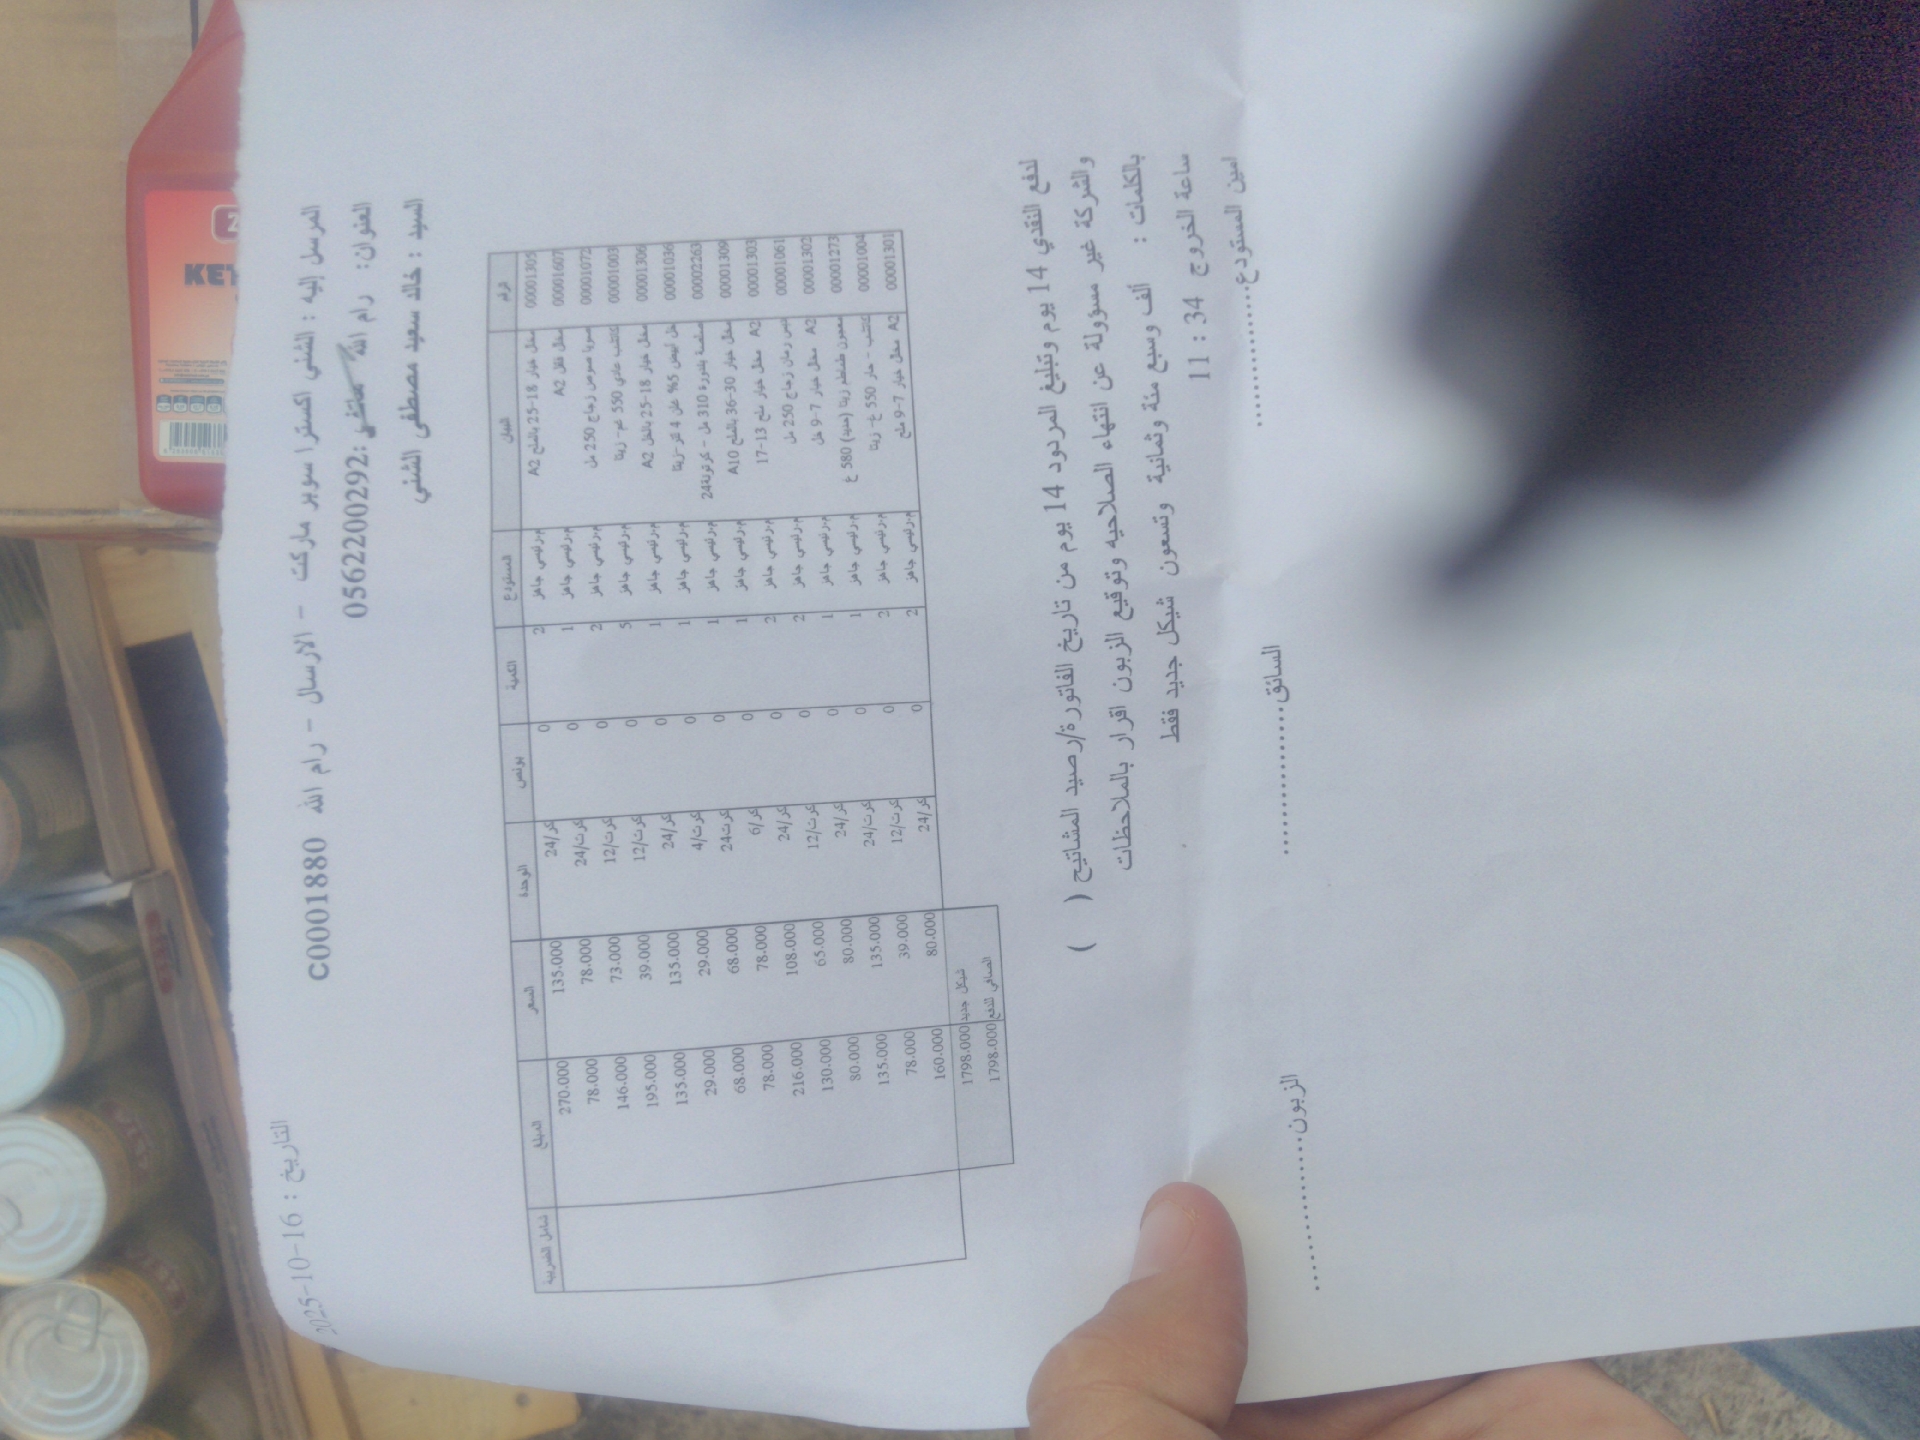 التاريخ : 16-10-2025
المرسل إليه : الشني اكسترا سوبر ماركت - الارسال - رام الله C0001880
العنوان: رام الله هاتفي: 0562200292
السيد : خالد سعيد مصطفى الشني
الرقم البيان المستودع الكمية بونص الوحدة السعر المبلغ شامل الضريبة
00001305 مخلل خيار 18-25 بالملح A2 م.رئيسي جاهز 2 0 كر/24 135.000 270.000
00001607 مخلل فلفل A2 م.رئيسي جاهز 1 0 كرت/24 78.000 78.000
00001072 صويا صوص زجاج 250 مل م.رئيسي جاهز 2 0 كرت/12 73.000 146.000
00001003 كاتشب عادي 550 غم- زيتا م.رئيسي جاهز 5 0 كرت/12 39.000 195.000
00001306 مخلل خيار 18-25 بالخل A2 م.رئيسي جاهز 1 0 كر/24 135.000 135.000
00001036 خل ابيض 5% خل 4 لتر -زيتا م.رئيسي جاهز 1 0 كرت/4 29.000 29.000
00002263 صلصة بندورة 310 مل - كرتونة24 م.رئيسي جاهز 1 0 كرت24 68.000 68.000
00001309 مخلل خيار 30-36 بالملح A10 م.رئيسي جاهز 1 0 كر/6 78.000 78.000
00001303 A2 مخلل خيار ملح 13-17 م.رئيسي جاهز 2 0 كر/24 108.000 216.000
00001061 دبس رمان زجاج 250 مل م.رئيسي جاهز 2 0 كرت/12 65.000 130.000
00001302 A2 مخلل خيار 7-9 خل م.رئيسي جاهز 1 0 كر/24 80.000 80.000
00001273 معجون طماطم زيتا (جديد) 580 غ م.رئيسي جاهز 1 0 كرت/24 135.000 135.000
00001004 كاتشب - حار 550 غ- زيتا م.رئيسي جاهز 2 0 كرت/12 39.000 78.000
00001301 A2 مخلل خيار 7-9 ملح م.رئيسي جاهز 2 0 كر/24 80.000 160.000
شيكل جديد 1798.000
الصافي للدفع 1798.000
لدفع النقدي 14 يوم وتبليغ المردود 14 يوم من تاريخ الفاتورة/رصيد المشاتيح ( )
والشركة غير مسؤولة عن انتهاء الصلاحيه وتوقيع الزبون اقرار بالملاحظات
بالكلمات : ألف وسبع مئة وثمانية وتسعون شيكل جديد فقط
ساعة الخروج 11 : 34
امين المستودع............... السائق............... الزبون...............
KET